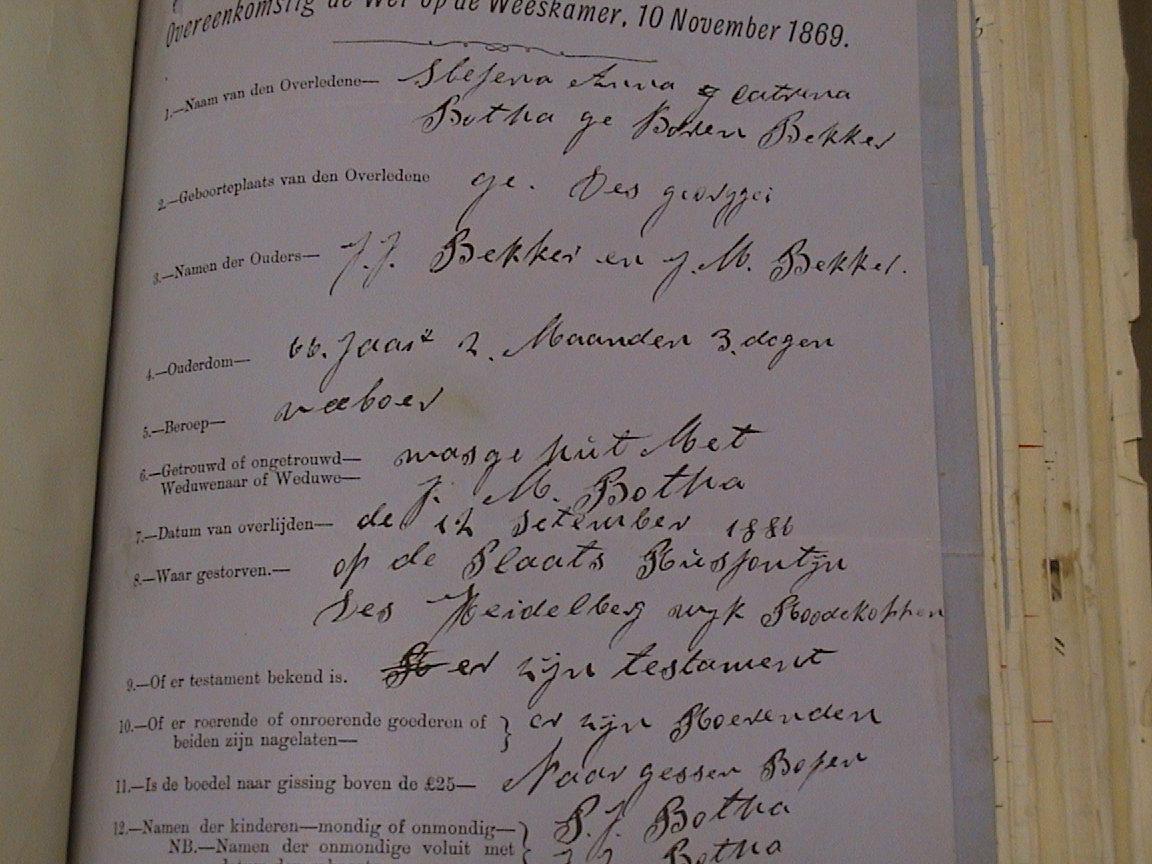 Overeenkomstig de Wet op de Weeskamer, 10 November 1869.
1.—Naam van den Overledene— Anna Catrina
Botha ge Boren Bekker
2.—Geboorteplaats van den Overledene ge. Des
3.—Namen der Ouders— J. J. Bekker en J. M. Bekker.
4.—Ouderdom— 66. Jaar 2. Maanden 3. dagen
5.—Beroep— veeboer
6.—Getrouwd of ongetrouwd— was ge Met
Weduwenaar of Weduwe— J. M. Botha
7.—Datum van overlijden— de 12 Setember 1886
8.—Waar gestorven.— op de Plaats
Des Heidelberg wyk Roodekoppen
9.—Of er testament bekend is. er zijn testament
10.—Of er roerende of onroerende goederen of } er zijn Roerenden
beiden zijn nagelaten—
11.—Is de boedel naar gissing boven de £25— Naar gessen Bofen
12.—Namen der kinderen—mondig of onmondig— } P. J. Botha
NB.—Namen der onmondige voluit met Botha